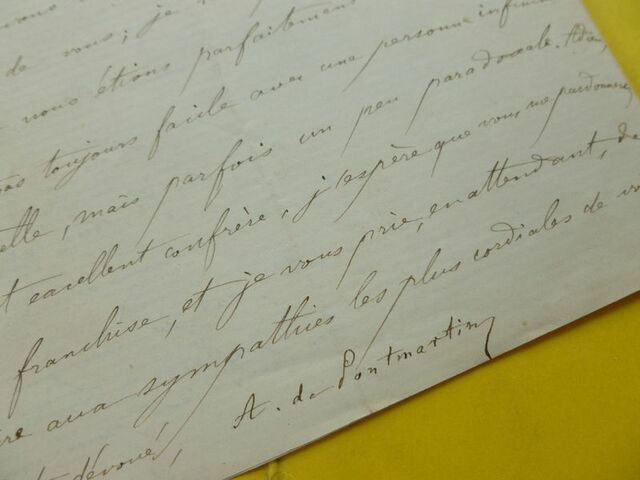 de vous ; je
nous étions parfaitement
pas toujours facile avec une personne
mais parfois un peu paradoxale. Adieu,
excellent confrère, j'espère que vous me pardonnerez
franchise, et je vous prie, en attendant, de
aux sympathies les plus cordiales de
dévoué,
A. de Pontmartin